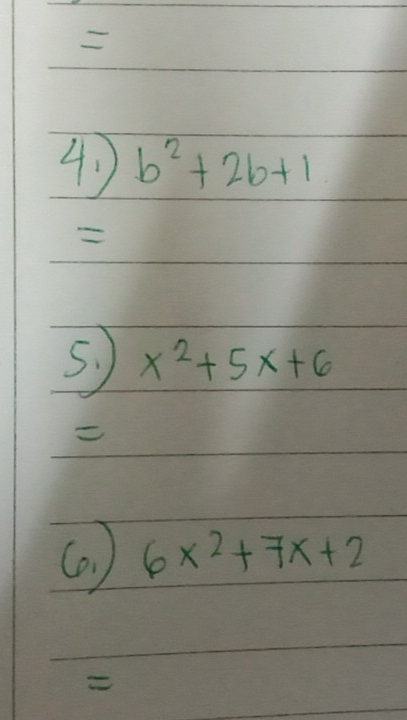 =
4.) b²+2b+1
=
5.) x²+5x+6
=
6.) 6x²+7x+2
=